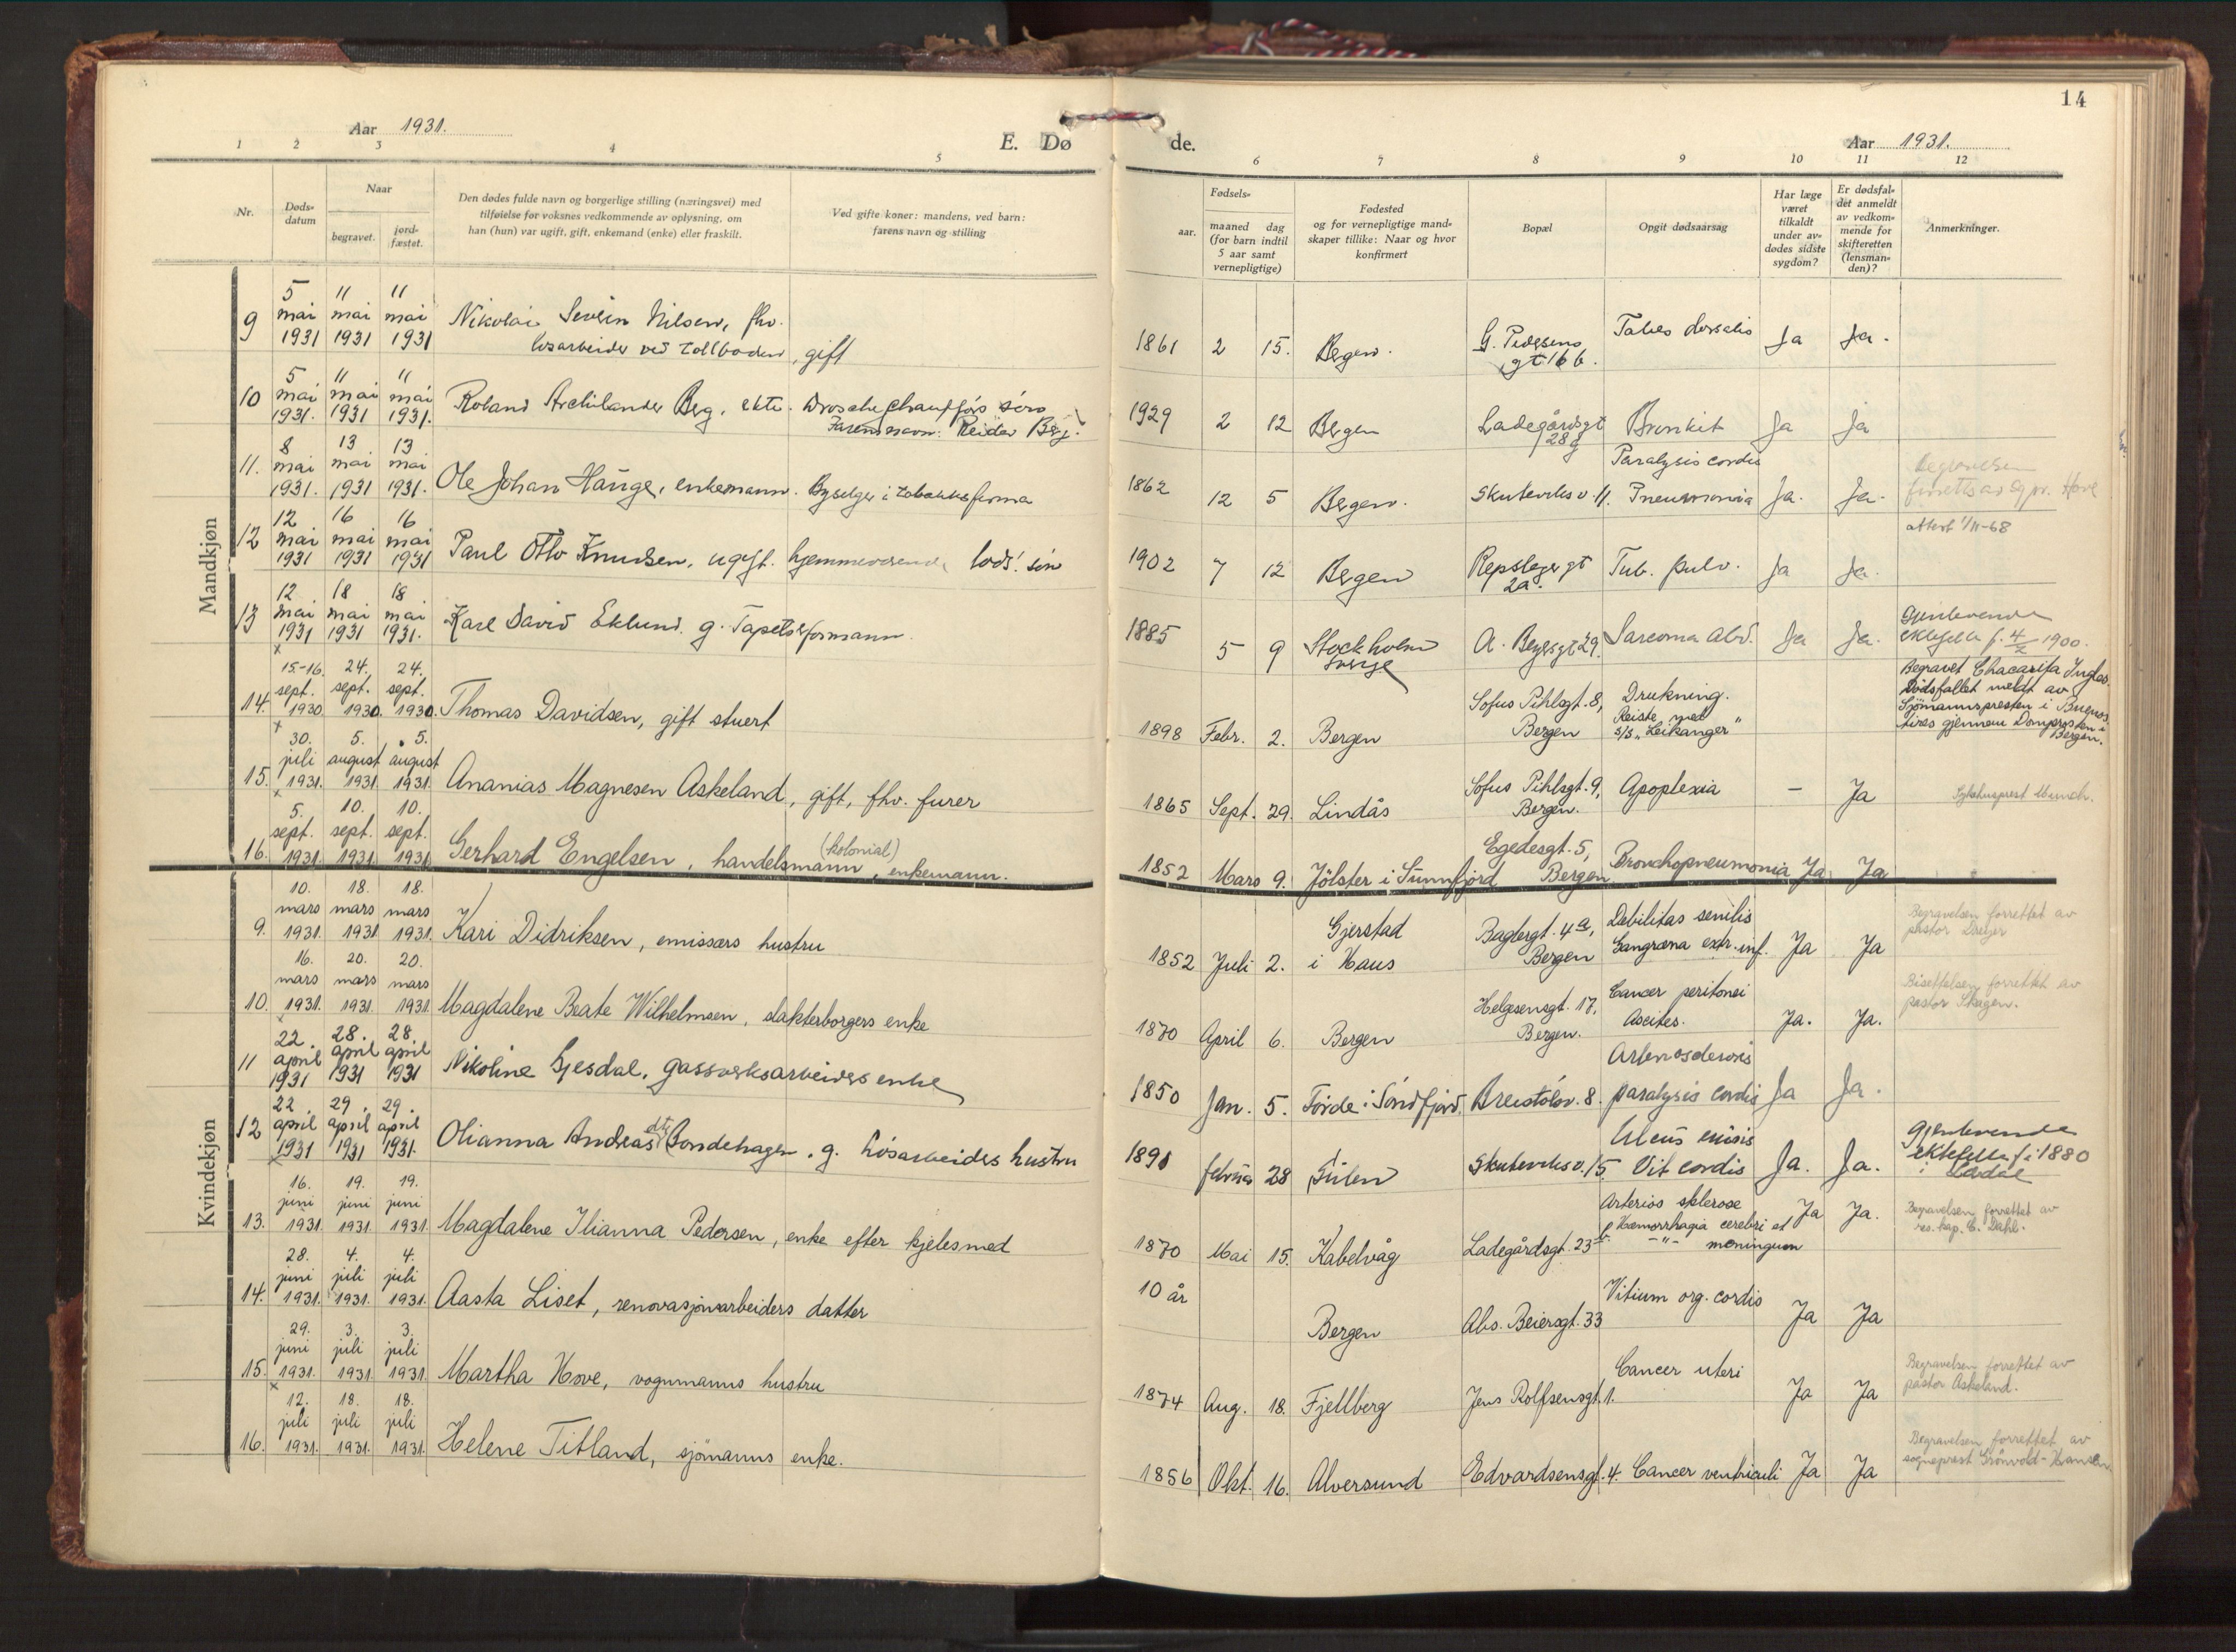 14
Aar 1931.
E. Dø de.
Aar 1931.
1 2 3 4 5 6 7 8 9 10 11 12
Nr.
Døds-
datum
Naar
begravet.
jord-
fæstet.
Den dødes fulde navn og borgerlige stilling (næringsvei) med
tilføielse for voksnes vedkommende av oplysning, om
han (hun) var ugift, gift, enkemand (enke) eller fraskilt.
Ved gifte koner: mandens, ved barn:
farens navn og stilling
Fødsels-
aar.
maaned dag
(for barn indtil
5 aar samt
vernepligtige)
Fødested
og for vernepligtige mand-
skaper tillike: Naar og hvor
konfirmert
Bopæl
Opgit dødsaarsag
Har læge
været
tilkaldt
under av-
dødes sidste
sygdom?
Er dødsfal-
det anmeldt
av vedkom-
mende for
skifteretten
(lensman-
den)?
Anmerkninger.
Mandkjøn
9 5 mai 1931 11 mai 1931 11 mai 1931 Nikolai Severin Nilsen, fhv.
løsarbeider ved tollboden, gift
1861 2 15. Bergen. G. Pedersens
gt 16 b. Tabes dorsalis Ja Ja.
10 5 mai 1931. 11 mai 1931 11 mai 1931. Roland Archilander Berg, ekte. Droschechaufførs søn
Farens navn: Reidar Berg.
1929 2 12 Bergen Ladegårdsgt
28 g Bronkit Ja Ja
11. 8 mai 1931. 13 mai 1931 13 mai 1931. Ole Johan Hauge, enkemann. Byselger i tobakksfirma
1862 12 5 Bergen. Skuteviksv. 11. Paralysis cordis
Pneumonia Ja. Ja. Begravelsen
forrettet av Hove
12 12 mai 1931 16 mai 1931 16 mai 1931 Paul Otto Knudsen, ugift. hjemmeværende lods' søn
1902 7 12 Bergen Repslagergt
2a. Tub. pulv. Ja Ja. attest 1/11-68
13 12 mai 1931 18 mai 1931 18 mai 1931. Karl David Eklund. g. Tapetserformann.
1885 5 9 Stockholm
Sverge A. Beyersgt 29. Sarcoma Abd. Ja Ja. Gjenlevende
ektefelle f. 4/2 1900.
14. x 15-16. sept. 1930 24. sept. 1930. 24. sept. 1930. Thomas Davidsen, gift stuert
1898 Febr. 2. Bergen Sofus Pihlsgt. 8,
Bergen Drukning.
Reiste med
s/s „Leikanger" Begravet Chacarita Inglas.
Dödsfallet meldt av
Sjömannspresten i Buenos
Aires gjennem Domprosten i
Bergen.
15. x 30. juli 1931. 5. august 1931. 5. august 1931. Ananias Magnesen Askeland, gift, fhv. furer
1865 Sept. 29. Lindås Sofus Pihlsgt. 9,
Bergen. Apoplexia – Ja Sykehusprest Munch.
16. x 5. sept. 1931. 10. sept. 1931. 10. sept. 1931 Gerhard Engelsen, handelsmann (kolonial), enkemann.
1852 Mars 9. Jölster i Sunnfjord Egedesgt. 5,
Bergen Bronchopneumonia Ja Ja
Kvindekjøn
9. 10. mars 1931. 18. mars 1931. 18. mars 1931. Kari Didriksen, emissærs hustru
1852 Juli 2. Gjerstad
i Haus Baglergt. 4a,
Bergen Debilitas senilis
Gangræna extr. inf. Ja Ja Begravelsen forrettet av
pastor Dreyer
10. 16. mars 1931. 20. mars 1931. 20. mars 1931. Magdalene Beate Wilhelmsen, slakterborgers enke
1870 April 6. Bergen Helgesensgt. 17,
Bergen. Cancer peritonei
Ascites. Ja. Ja. Bisettelsen forrettet av
pastor Skagen.
11 x 22. april 1931 28. april 1931 28. april 1931 Nikoline Gjesdal, gassverksarbeiders enke
1850 Jan. 5. Førde i Söndfjord. Breistölsv. 8. Arteriosclerosis
paralysis cordis Ja Ja.
12 22. april 1931 29. april 1931 29. april 1931. Olianna Andreasdtr Bondehagen. g. løsarbeiders hustru
1891 februar 28 Gulen Skuteviksv. 15. Ulcus cruris
Vit cordis Ja. Ja. Gjenlevende
ektefelle f. i 1880
i
13. x 16. juni 1931. 19. juni 1931. 19. juni 1931. Magdalene Ilianna Pedersen, enke efter kjelesmed
1870 Mai 15. Kabelvåg Ladegårdsgt. 23 Arterios sklerose
Hæmorrhagia cerebri et
-"- meningum Ja Ja. Begravelsen forrettet av
res. kap. C. Dahl.
14. 28. juni 1931. 4. juli 1931. 4. juli 1931. Aasta Liset, renovasjonsarbeiders datter
10 år Bergen Abs. Beiersgt. 33 Vitium org. cordis Ja Ja
15. 29. juni 1931. 3. juli 1931. 3. juli 1931. Martha Hove, vognmanns hustru
1874 Aug. 18. Fjellberg Jens Rolfsensgt. 1. Cancer uteri Ja Ja Begravelsen forrettet av
pastor Askeland.
16. x 12. juli 1931. 18. juli 1931. 18. juli 1931. Helene Titland, sjömanns enke.
1856 Okt. 16. Alversund Edvardsensgt. 4. Cancer ventriculi Ja Ja Begravelsen forrettet av
sogneprest Grönvold-Hansen